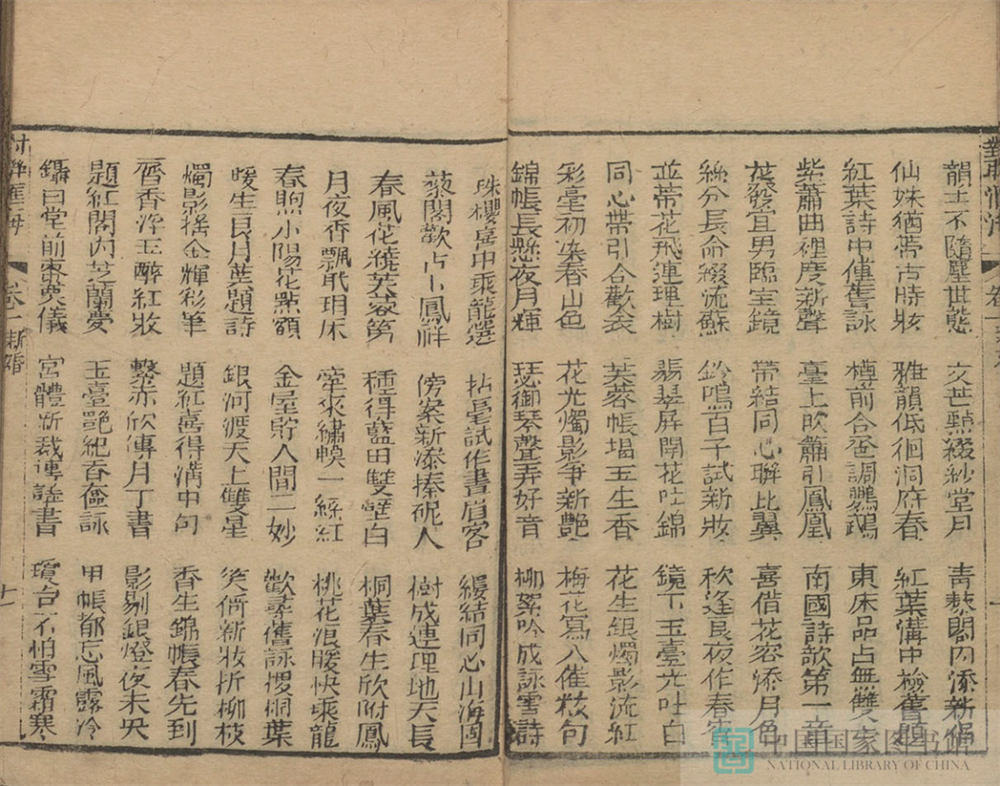 韻士不隨塵世態　文芒點綴紗堂月　青藜閣內添新侶
仙姝猶帶古時妝　雅韻低徊洞府春　紅葉溝中檢舊題
紅葉詩中僅舊詠　樽前合卺調鸚鵡　東床品占無雙士
紫簫曲裡度新聲　臺上吹簫引鳳凰　南國詩歌第一章
花發宜男臨宝鏡　帶結同心聯比翼　喜借花容添月色
絲分長命綴流蘇　鈴鳴百子試新妝　秋逢良夜作春宵
並蒂花飛連理樹　翡翠屏開花吐錦　鏡下玉臺光吐白
同心帶引合歡衾　芙蓉帳堨玉生香　花生銀燭影流紅
彩毫初染春山色　花光燭影爭新艷　梅花寫入催妝句
錦帳長懸夜月輝　瑟御琴聲弄好音　柳絮吟成詠雪詩
珠樓喜中乘龍選　拈毫試作畫眉客　緩結同心山海固
藜閣歡占卜鳳祥　傍案新添捧硯人　樹成連理地天長
春風花繞芙蓉第　種得藍田雙璧白　桐葉春生欣附鳳
月夜香飄玳瑁床　牽來繡幙一絲紅　桃花浪暖快乘龍
春煦小陽花點額　金屋貯人間二妙　歡尋舊詠搜桐葉
暖生良月葉題詩　銀河渡天上雙星　笑倩新妝折柳枝
燭影搖金輝彩筆　題紅喜得溝中句　香生錦帳春先到
屑香浮玉醉紅妝　繫赤欣傳月下書　影剔銀燈夜未央
題紅閣內芝蘭夢　玉臺艷紀香奩詠　甲帳都忘風露冷
鑷日堂前棗栗儀　宮體新裁博議書　瓊台不怕雪霜寒
卷一　新婚　十一